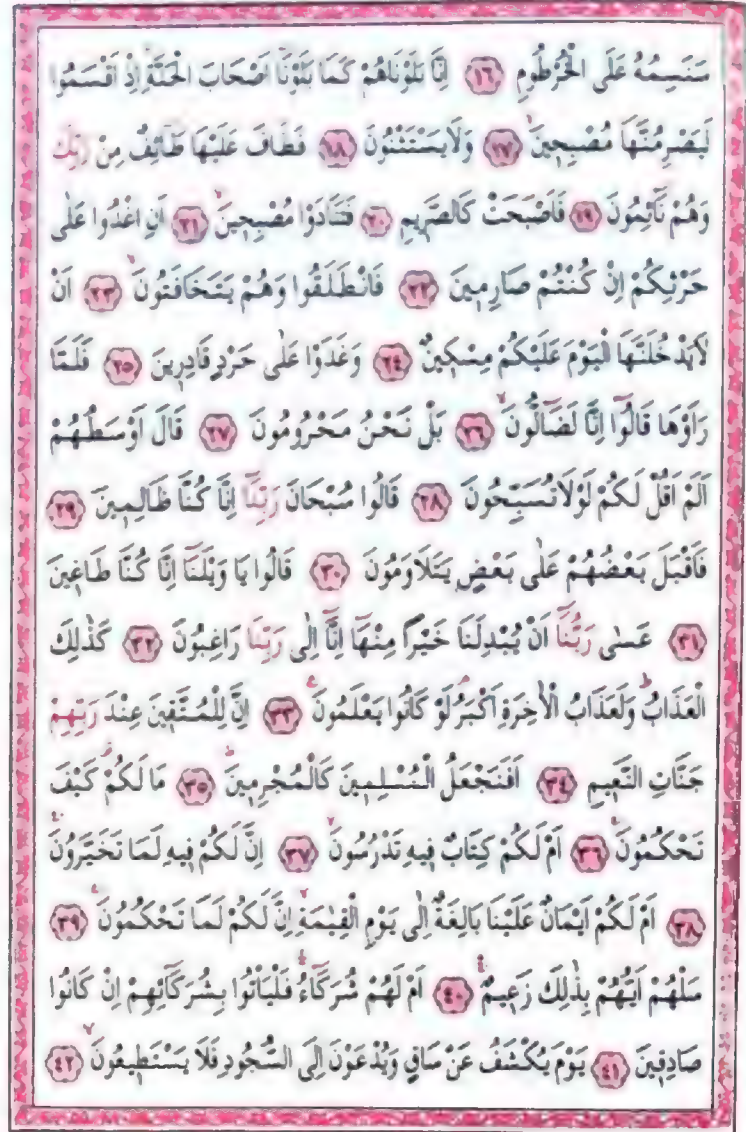 سَنَسِمُهُ عَلَى الْخُرْطُومِ ﴿١٦﴾ اِنَّا بَلَوْنَاهُمْ كَمَا بَلَوْنَٓا اَصْحَابَ الْجَنَّةِۚ اِذْ اَقْسَمُوا
لَيَصْرِمُنَّهَا مُصْبِحٖينَۙ ﴿١٧﴾ وَلَا يَسْتَثْنُونَ ﴿١٨﴾ فَطَافَ عَلَيْهَا طَٓائِفٌ مِنْ رَبِّكَ
وَهُمْ نَٓائِمُونَ ﴿١٩﴾ فَاَصْبَحَتْ كَالصَّرٖيمِ ﴿٢٠﴾ فَتَنَادَوْا مُصْبِحٖينَۙ ﴿٢١﴾ اَنِ اغْدُوا عَلٰى
حَرْثِكُمْ اِنْ كُنْتُمْ صَارِمٖينَ ﴿٢٢﴾ فَانْطَلَقُوا وَهُمْ يَتَخَافَتُونَۙ ﴿٢٣﴾ اَنْ
لَا يَدْخُلَنَّهَا الْيَوْمَ عَلَيْكُمْ مِسْكٖينٌ ﴿٢٤﴾ وَغَدَوْا عَلٰى حَرْدٍ قَادِرٖينَ ﴿٢٥﴾ فَلَمَّا
رَاَوْهَا قَالُٓوا اِنَّا لَضَٓالُّونَۙ ﴿٢٦﴾ بَلْ نَحْنُ مَحْرُومُونَ ﴿٢٧﴾ قَالَ اَوْسَطُهُمْ
اَلَمْ اَقُلْ لَكُمْ لَوْلَا تُسَبِّحُونَ ﴿٢٨﴾ قَالُوا سُبْحَانَ رَبِّنَٓا اِنَّا كُنَّا ظَالِمٖينَ ﴿٢٩﴾
فَاَقْبَلَ بَعْضُهُمْ عَلٰى بَعْضٍ يَتَلَاوَمُونَ ﴿٣٠﴾ قَالُوا يَا وَيْلَنَٓا اِنَّا كُنَّا طَاغٖينَ
﴿٣١﴾ عَسٰى رَبُّنَٓا اَنْ يُبْدِلَنَا خَيْرًا مِنْهَٓا اِنَّٓا اِلٰى رَبِّنَا رَاغِبُونَ ﴿٣٢﴾ كَذٰلِكَ
الْعَذَابُۜ وَلَعَذَابُ الْاٰخِرَةِ اَكْبَرُۢ لَوْ كَانُوا يَعْلَمُونَ۟ ﴿٣٣﴾ اِنَّ لِلْمُتَّقٖينَ عِنْدَ رَبِّهِمْ
جَنَّاتِ النَّعٖيمِ ﴿٣٤﴾ اَفَنَجْعَلُ الْمُسْلِمٖينَ كَالْمُجْرِمٖينَۜ ﴿٣٥﴾ مَا لَكُمْ۠ كَيْفَ
تَحْكُمُونَۚ ﴿٣٦﴾ اَمْ لَكُمْ كِتَابٌ فٖيهِ تَدْرُسُونَۙ ﴿٣٧﴾ اِنَّ لَكُمْ فٖيهِ لَمَا تَخَيَّرُونَۚ
﴿٣٨﴾ اَمْ لَكُمْ اَيْمَانٌ عَلَيْنَا بَالِغَةٌ اِلٰى يَوْمِ الْقِيٰمَةِۙ اِنَّ لَكُمْ لَمَا تَحْكُمُونَۚ ﴿٣٩﴾
سَلْهُمْ اَيُّهُمْ بِذٰلِكَ زَعٖيمٌۚۛ ﴿٤٠﴾ اَمْ لَهُمْ شُرَكَٓاءُۚۛ فَلْيَاْتُوا بِشُرَكَٓائِهِمْ اِنْ كَانُوا
صَادِقٖينَ ﴿٤١﴾ يَوْمَ يُكْشَفُ عَنْ سَاقٍ وَيُدْعَوْنَ اِلَى السُّجُودِ فَلَا يَسْتَطٖيعُونَۙ ﴿٤٢﴾